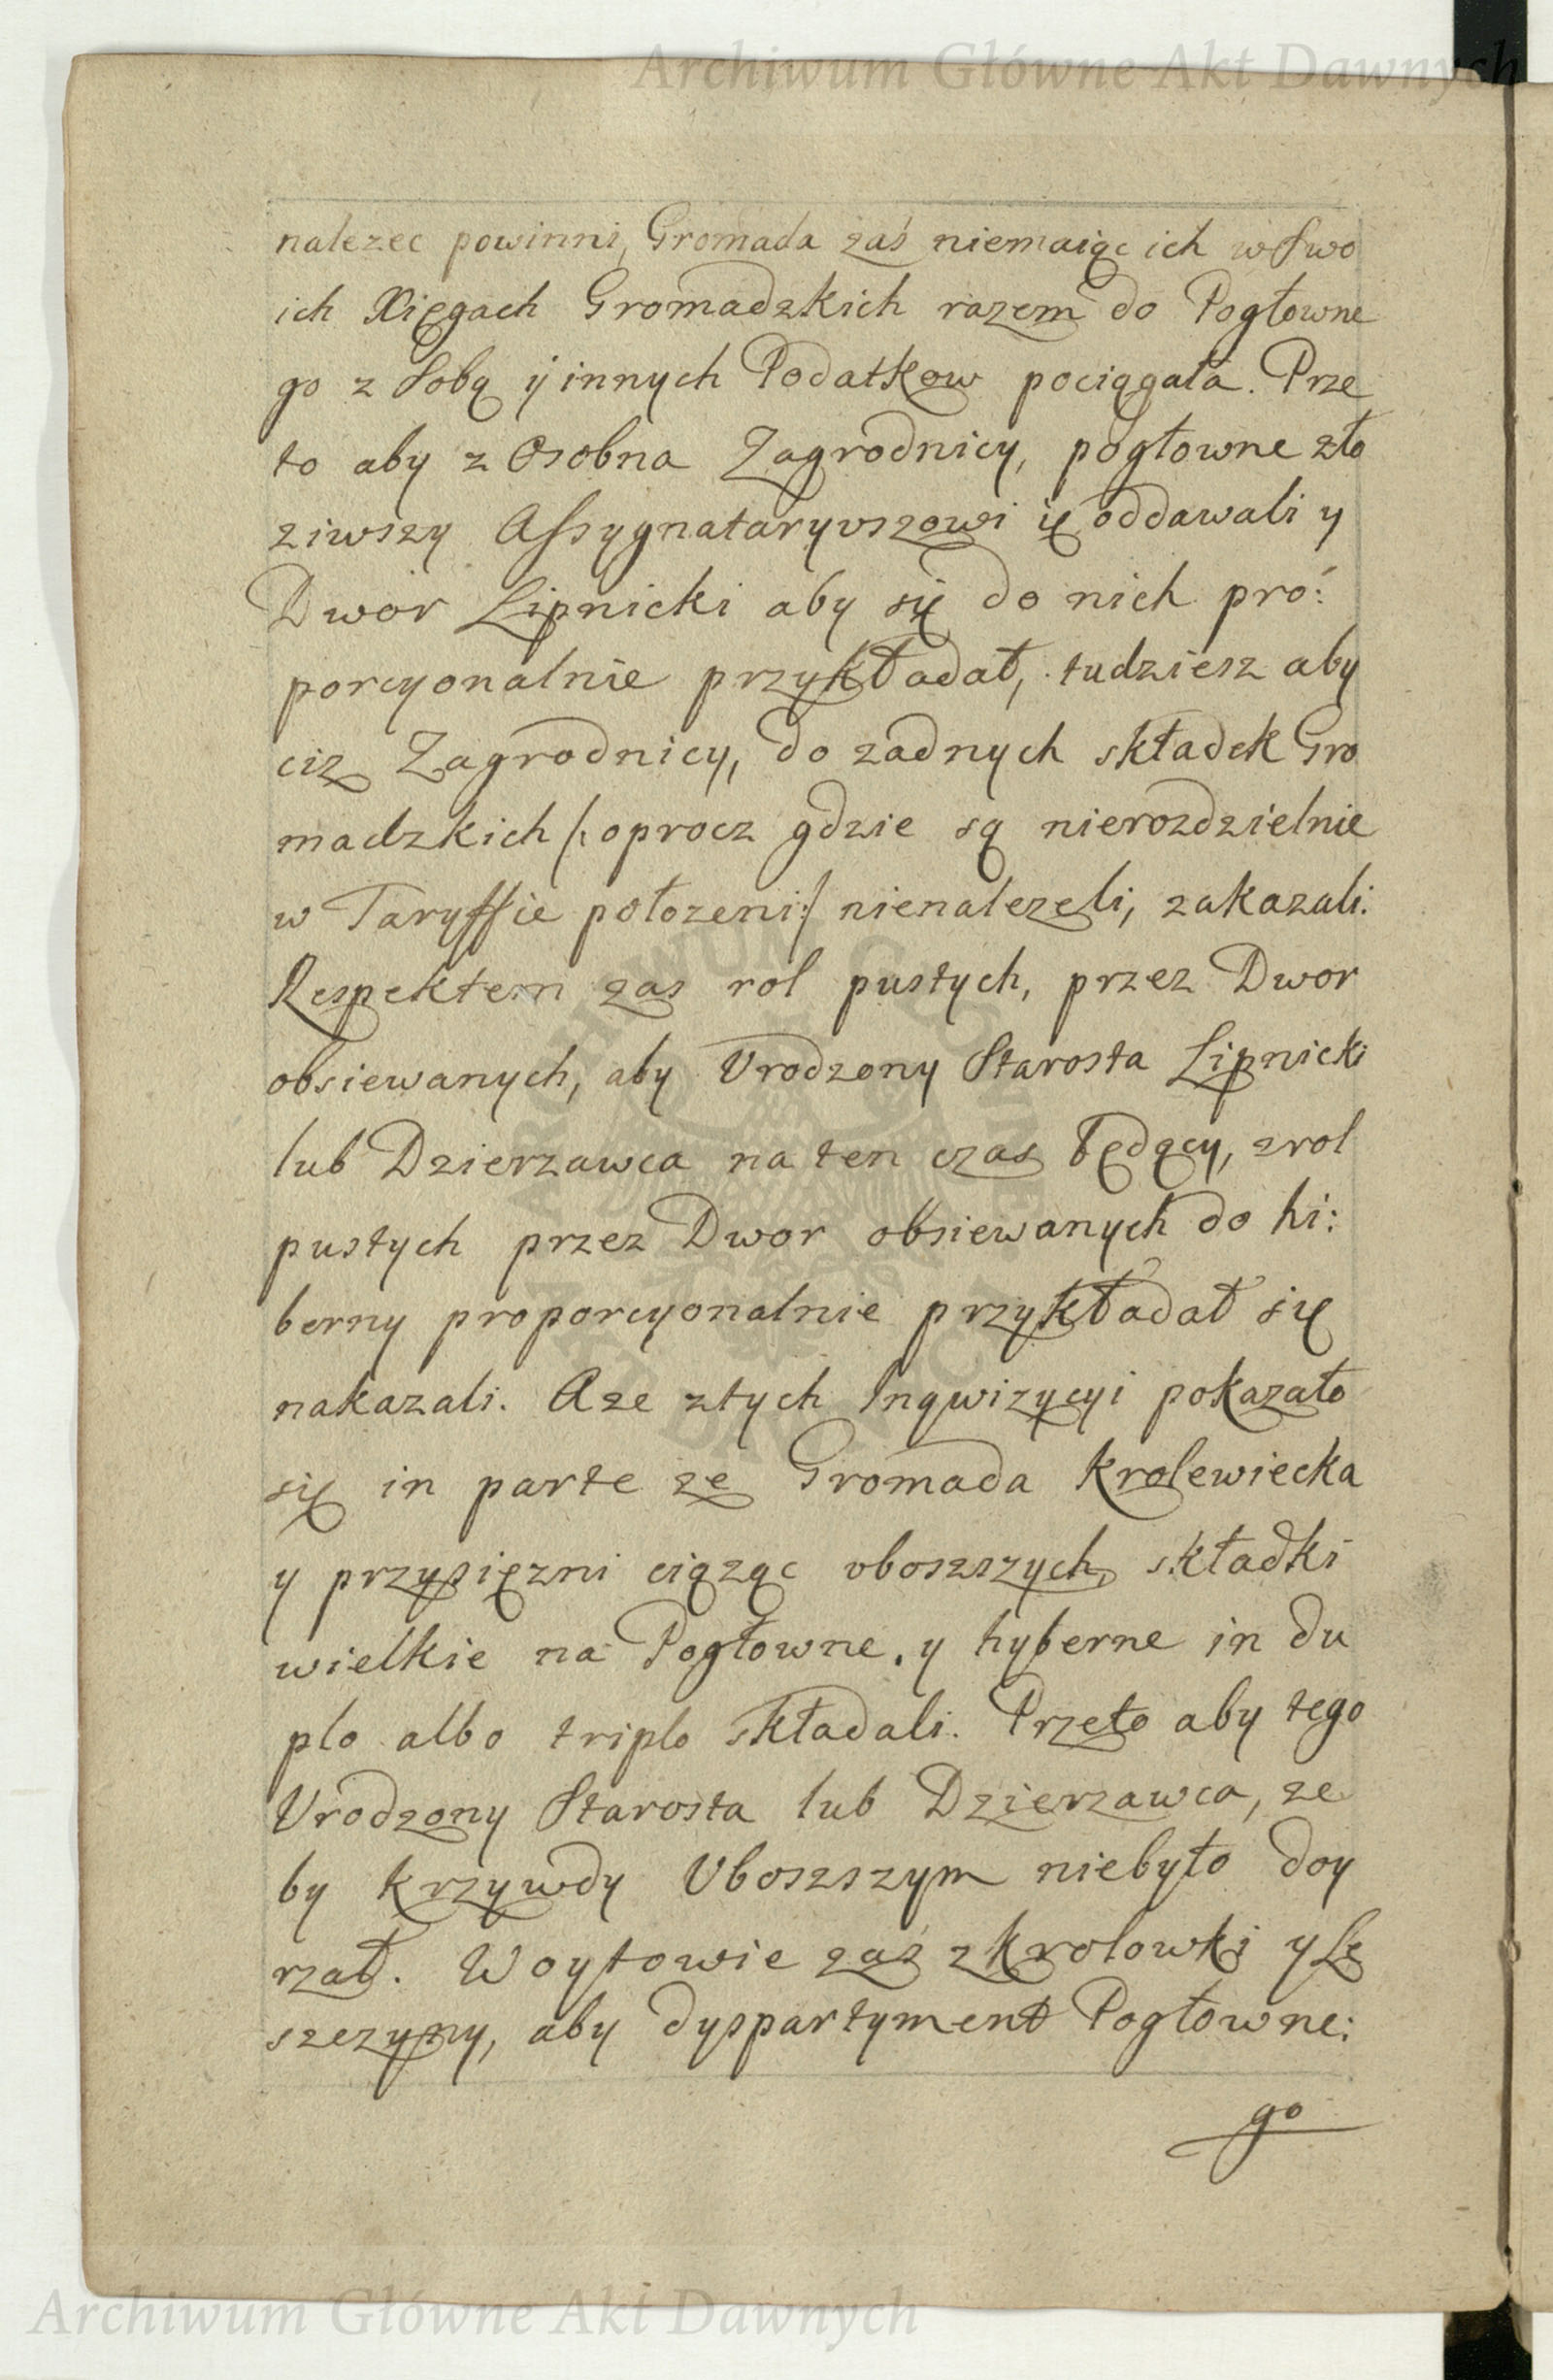 Archiwum Główne Akt Dawnych
nalezec powinni, Gromada zaś niemaiąc ich w Swo
ich Xięgach Gromadzkich razem do Pogłowne
go z Sobą ÿ innych Podatkow pociągała. Prze
to aby z Osobna Zagrodnicy, pogłowne zło
ziwszy Assygnataryuszowi ię oddawali y
Dwor Lipnicki aby się do nich pro:
porcyonalnie przykładał, tudziesz aby
ciz Zagrodnicy, do zadnych składek Gro
madzkich /: oprocz gdzie są nierozdzielnie
w Taryffie położeni :/ nienalezeli, zakazali.
Respektem zas rol pustych, przez Dwor
obsiewanych, aby Urodzony Starosta Lipnicki
lub Dzierzawca na ten czas będący, z rol
pustych przez Dwor obsiewanych do hi:
berny proporcyonalnie przykładał się
nakazali. A ze z tych Inqwizycyi pokazało
się in parte ze Gromada Krolewiecka
y przysięzni ciążąc vboszszych, składki
wielkie na Pogłowne, y hyberne in du
plo albo triplo składali. Przeto aby tego
Urodzony Starosta lub Dzierzawca, ze
by krzywdy Uboszszym niebyło doy
rzał. Woytowie zaś z Krolowki y Le
szczyny, aby dyspartyment Pogłowne:
go
Archiwum Główne Akt Dawnych